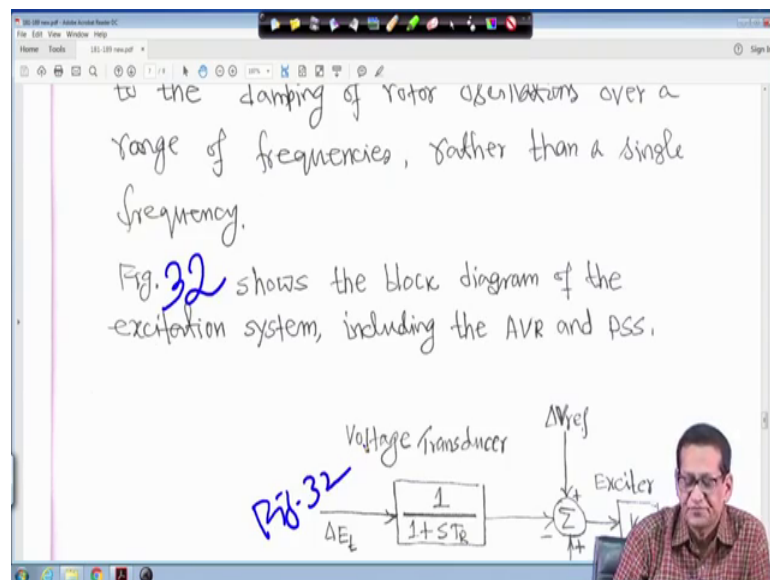 181-189 new.pdf - Adobe Acrobat Reader DC
File Edit View Window Help
Home Tools 181-189 new.pdf × Sign In
to the damping of rotor oscillations over a
range of frequencies, rather than a single
frequency.
Fig. 32 shows the block diagram of the
excitation system, including the AVR and PSS.
Voltage Transducer
ΔVref
Exciter
Fig. 32
ΔEt
1
1+STR
Σ
+
-
+
K